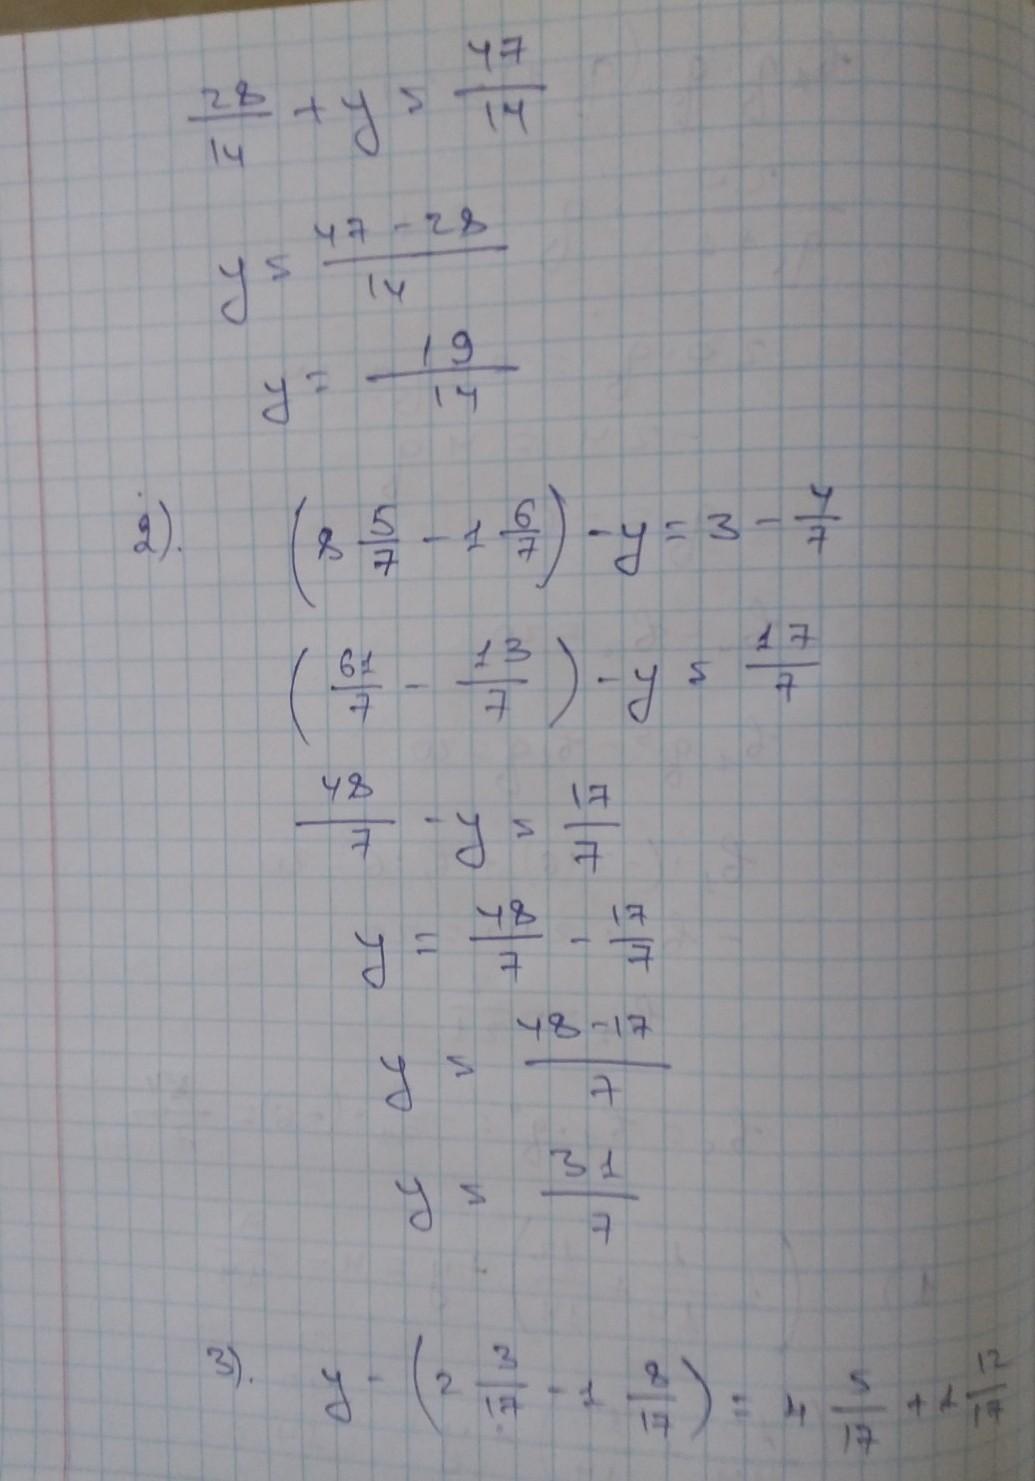 28/14 + y = 47/14
y = (47 - 28)/14
y = 19/14
2). (8 5/7 - 1 6/7) - y = 3 - 4/7
(61/7 - 13/7) - y = 17/7
48/7 - y = 17/7
y = 48/7 - 17/7
y = (48 - 17)/7
y = 31/7
3). y - (2 3/17 - 1 8/17) = 4 5/17 + 1 12/17